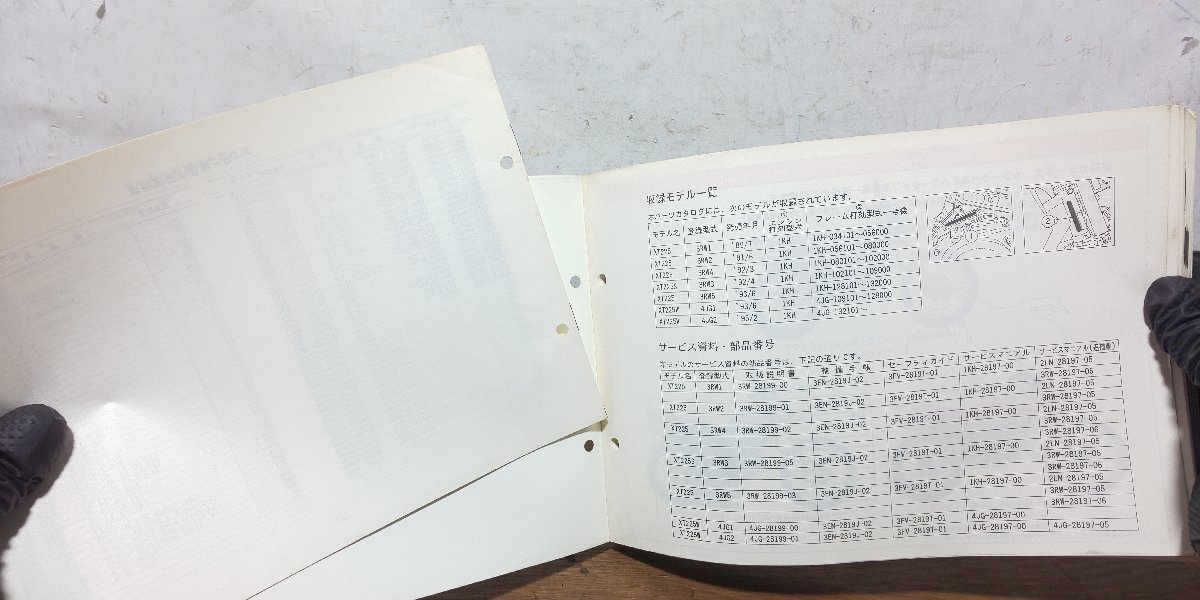 収録モデル一覧
本パーツカタログには、次のモデルが収録されています。
モデル名 登録型式 発売年月 ① エンジン打刻型式 ② フレーム打刻型式-号機
XT225 3RW1 1KH 1KH-034101~056000
XT225 3RW2 1KH 1KH-056101~080000
XT225 3RW4 '92/3 1KH 1KH-080101~102000
XT225S 3RW3 '92/4 1KH 1KH-102101~109000
XT225 3RW5 1KH 1KH-128101~132000
XT225W 4JG1 1KH 4JG-109101~128000
XT225W 4JG2 1KH 4JG-132101~
① ②
サービス資料・部品番号
本モデルのサービス資料の部品番号は、下記の通りです。
モデル名 登録型式 取扱説明書 整備手帳 セーフティガイド サービスマニュアル サービスマニュアル(追補版)
XT225 3RW1 3RW-28199-00 3EN-2819J-02 3FV-28197-01 1KH-28197-00 2LN-28197-05
3RW-28197-05
XT225 3RW2 3RW-28199-01 3EN-2819J-02 3FV-28197-01 1KH-28197-00 2LN-28197-05
3RW-28197-05
XT225 3RW4 3RW-28199-02 3EN-2819J-02 3FV-28197-01 1KH-28197-00 2LN-28197-05
3RW-28197-05
3RW-28197-06
XT225S 3RW3 3RW-28199-05 3EN-2819J-02 3FV-28197-01 1KH-28197-00 2LN-28197-05
3RW-28197-05
3RW-28197-06
XT225 3RW5 3RW-28199-03 3EN-2819J-02 3FV-28197-01 1KH-28197-00 2LN-28197-05
3RW-28197-05
3RW-28197-06
XT225W 4JG1 4JG-28199-00 3EN-2819J-02 3FV-28197-01 4JG-28197-00 4JG-28197-05
XT225W 4JG2 4JG-28199-01 3EN-2819J-02 3FV-28197-01 4JG-28197-00